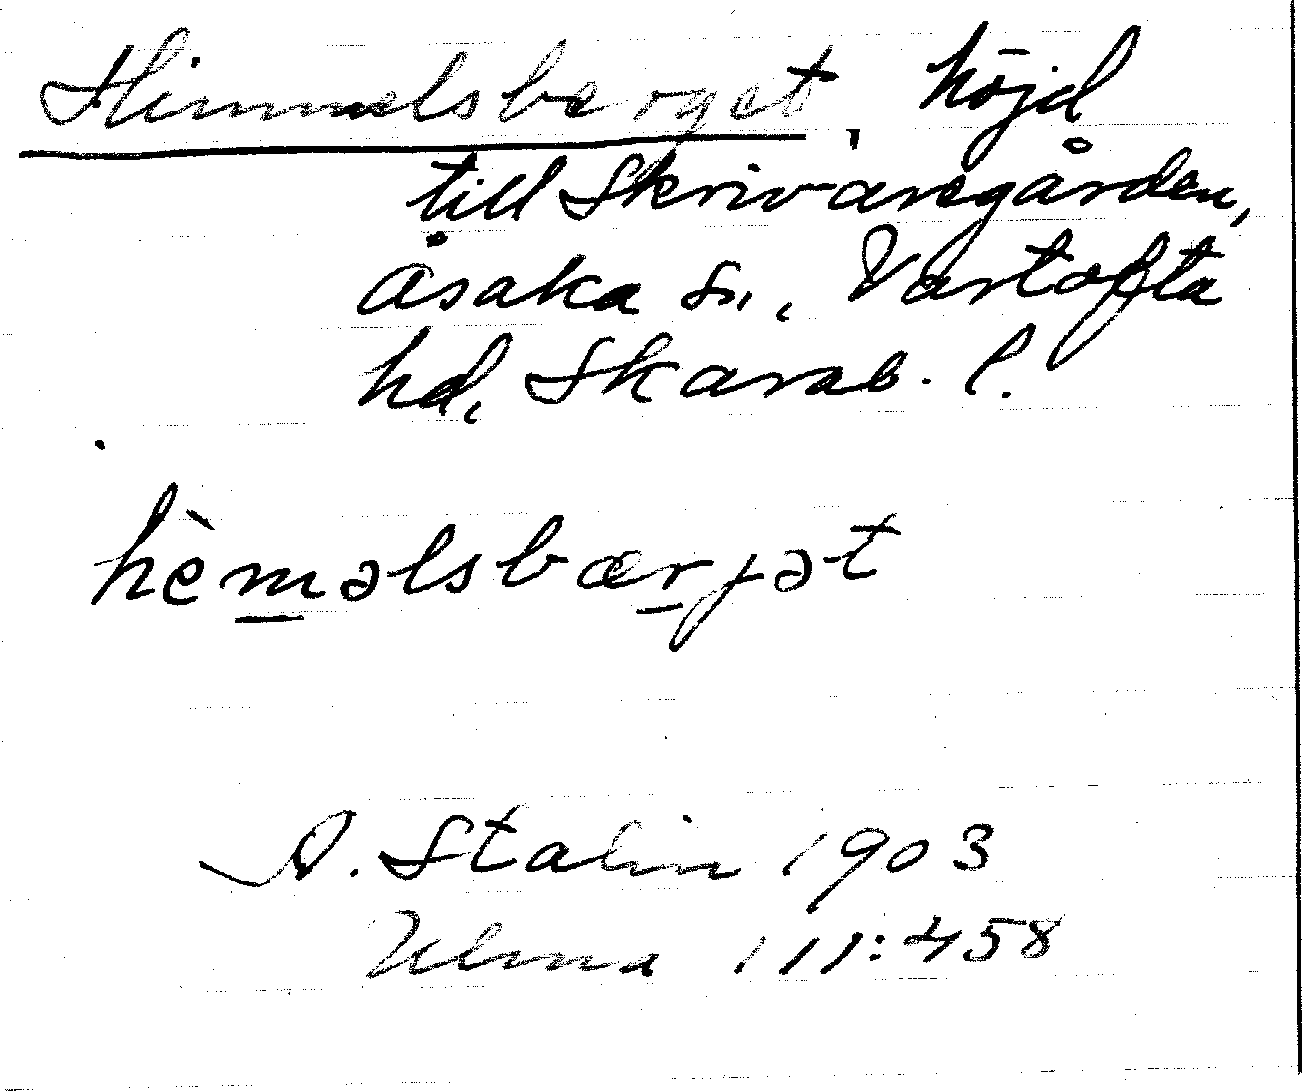 Himmelsberget, höjd
till Skrivaregården,
Åsaka sn., Vartofta
hd, Skarab. l.
hèm̲əlsbær̲jət
A. Stalin 1903
Ulma 111:458